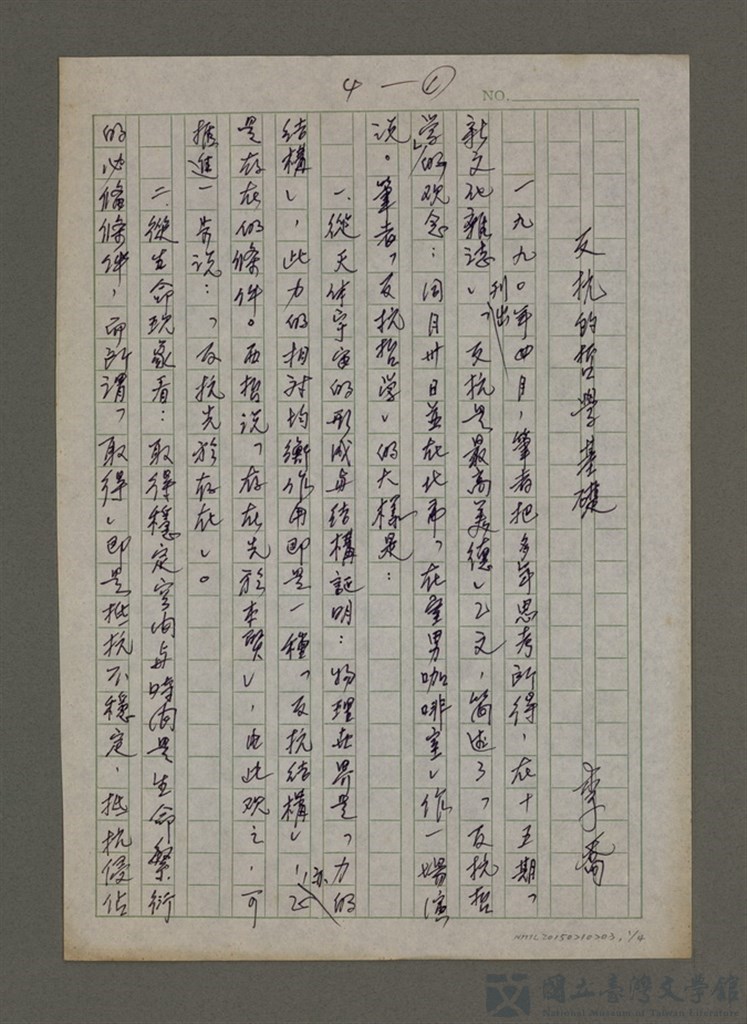 4－①
NO.
反抗的哲學基礎
李喬
一九九〇年四月，筆者把多年思考所得，在十五期「
新文化雜誌」，刊出「反抗是最高美德」乙文，簡述了「反抗哲
學」的观念：同月卅日並在北市「在室男咖啡室」作一場演
说。筆者「反抗哲学」的大樣是：
一、從天体宇宙的形成与结構証明：物理世界是「力的
结構」，此力的相对均衡作用即是一種「反抗结構」；亦
是存在的條件。西哲说「存在先於本質」，由此观之，可
推進一步说：「反抗先於存在」。
二、從生命现象看：取得穩定空间与時间是生命繁衍
的必備條件，而所謂「取得」即是抵抗不穩定，抵抗侵佔
NMTL20150210203, 1/4
國立臺灣文學館
National Museum of Taiwan Literature